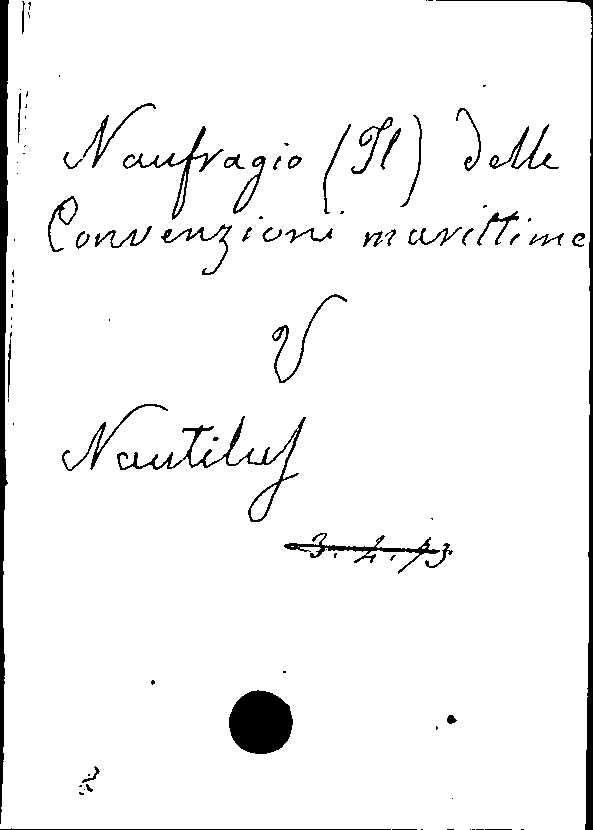 Naufragio (Il) delle
Convenzioni marittime
V
Nautilus
3.4.73